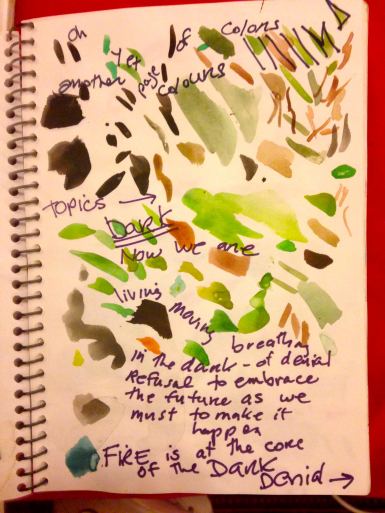 oh
Yet
of colors
another page
colours
TOPICS →
DARK
Now we are
living
moving
breathing
in the dark - of denial
Refusal to embrace
the future as we
must to make it
happen
FIRE is at the core
of the DARK
Denial →